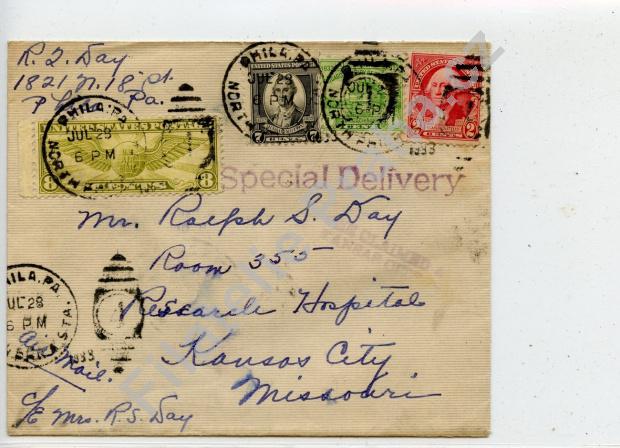 R. Q. Day
1821 N. 18 St.
Pa.
PHILA. PA.
JUL 28
6 PM
NORTH
PHILA. PA.
JUL 28
6 PM
NORTH
1933
JUL
6 PM
NORTH PHILA
1933
7
2
8
8
Special Delivery
Mr. Ralph S. Day
Room 355
Research Hospital
Kansas City
Missouri
PHILA. PA.
JUL 28
6 PM
STA.
1933
Air Mail.
C/o Mrs. R. S. Day